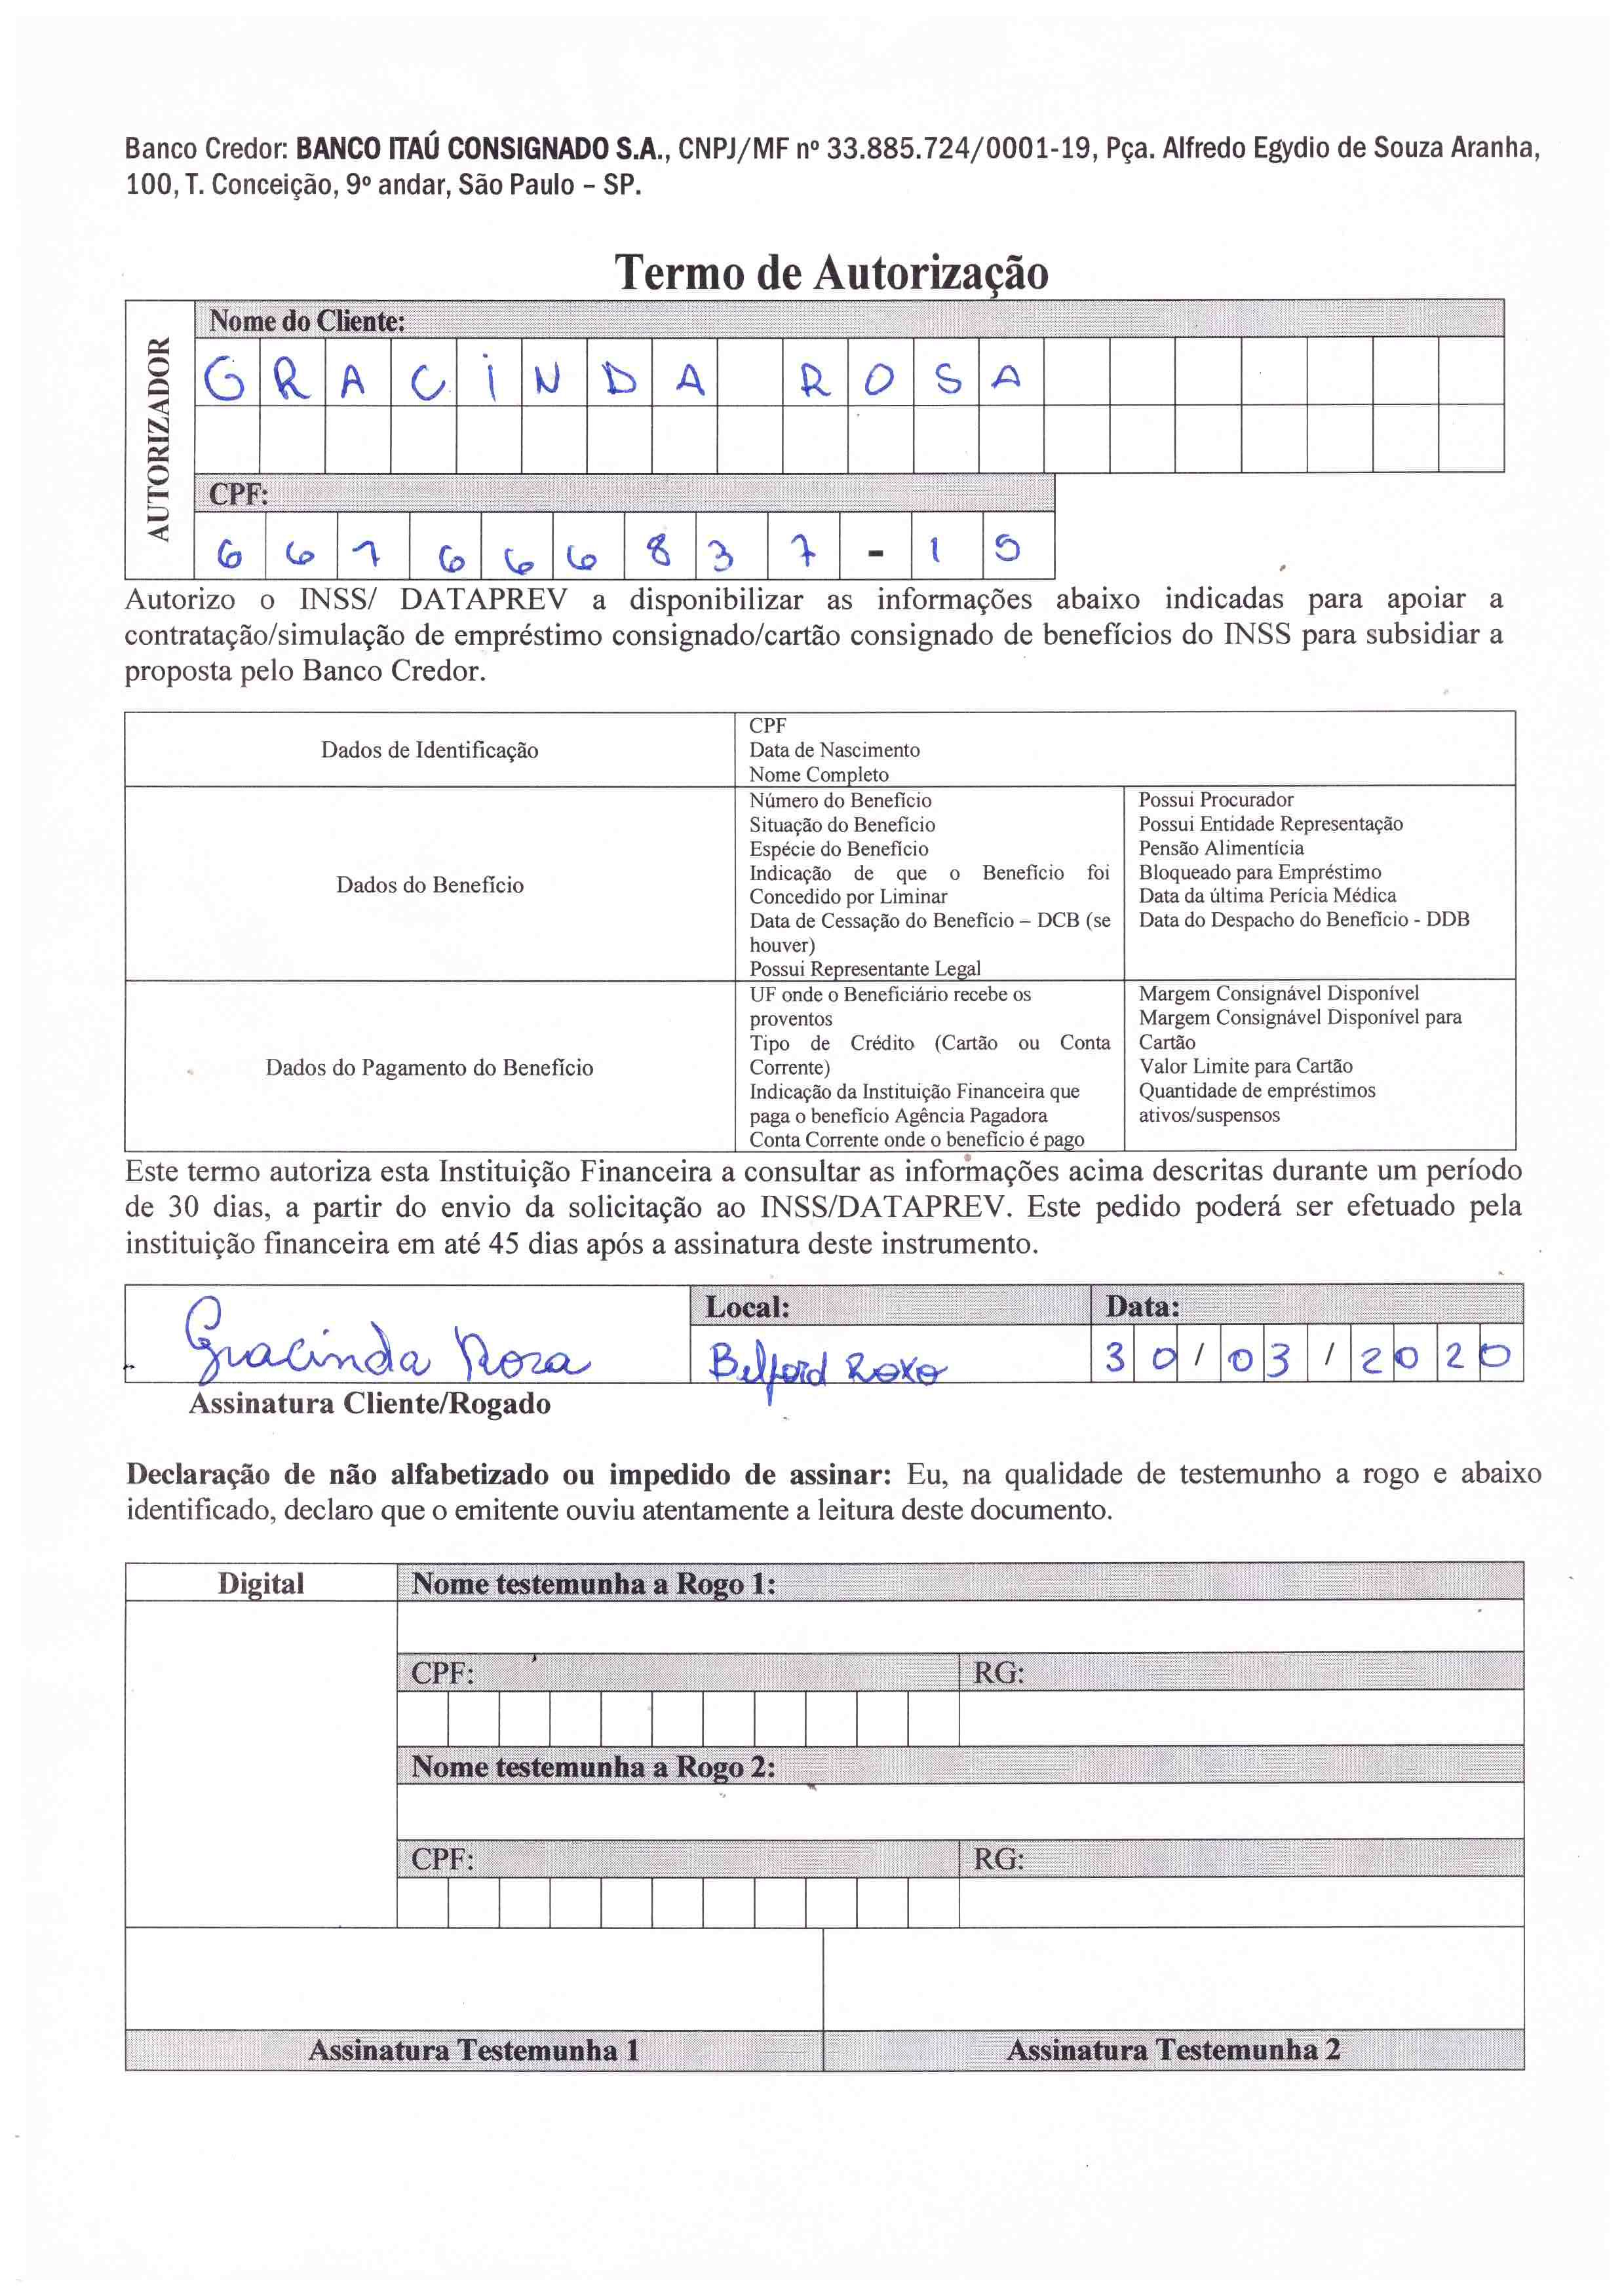 Banco Credor: BANCO ITAÚ CONSIGNADO S.A., CNPJ/MF nº 33.885.724/0001-19, Pça. Alfredo Egydio de Souza Aranha,
100, T. Conceição, 9º andar, São Paulo – SP.
Termo de Autorização
AUTORIZADOR
Nome do Cliente:
GRACINDA ROSA
CPF:
667666837-15
Autorizo o INSS/ DATAPREV a disponibilizar as informações abaixo indicadas para apoiar a
contratação/simulação de empréstimo consignado/cartão consignado de benefícios do INSS para subsidiar a
proposta pelo Banco Credor.
Dados de Identificação
CPF
Data de Nascimento
Nome Completo
Dados do Benefício
Número do Benefício
Situação do Benefício
Espécie do Benefício
Indicação de que o Benefício foi
Concedido por Liminar
Data de Cessação do Benefício – DCB (se
houver)
Possui Representante Legal
Possui Procurador
Possui Entidade Representação
Pensão Alimentícia
Bloqueado para Empréstimo
Data da última Perícia Médica
Data do Despacho do Benefício - DDB
Dados do Pagamento do Benefício
UF onde o Beneficiário recebe os
proventos
Tipo de Crédito (Cartão ou Conta
Corrente)
Indicação da Instituição Financeira que
paga o benefício Agência Pagadora
Conta Corrente onde o benefício é pago
Margem Consignável Disponível
Margem Consignável Disponível para
Cartão
Valor Limite para Cartão
Quantidade de empréstimos
ativos/suspensos
Este termo autoriza esta Instituição Financeira a consultar as informações acima descritas durante um período
de 30 dias, a partir do envio da solicitação ao INSS/DATAPREV. Este pedido poderá ser efetuado pela
instituição financeira em até 45 dias após a assinatura deste instrumento.
Gracinda Roza
Assinatura Cliente/Rogado
Local:
Belford Roxo
Data:
30/03/2020
Declaração de não alfabetizado ou impedido de assinar: Eu, na qualidade de testemunho a rogo e abaixo
identificado, declaro que o emitente ouviu atentamente a leitura deste documento.
Digital
Nome testemunha a Rogo 1:
CPF:
RG:
Nome testemunha a Rogo 2:
CPF:
RG:
Assinatura Testemunha 1
Assinatura Testemunha 2